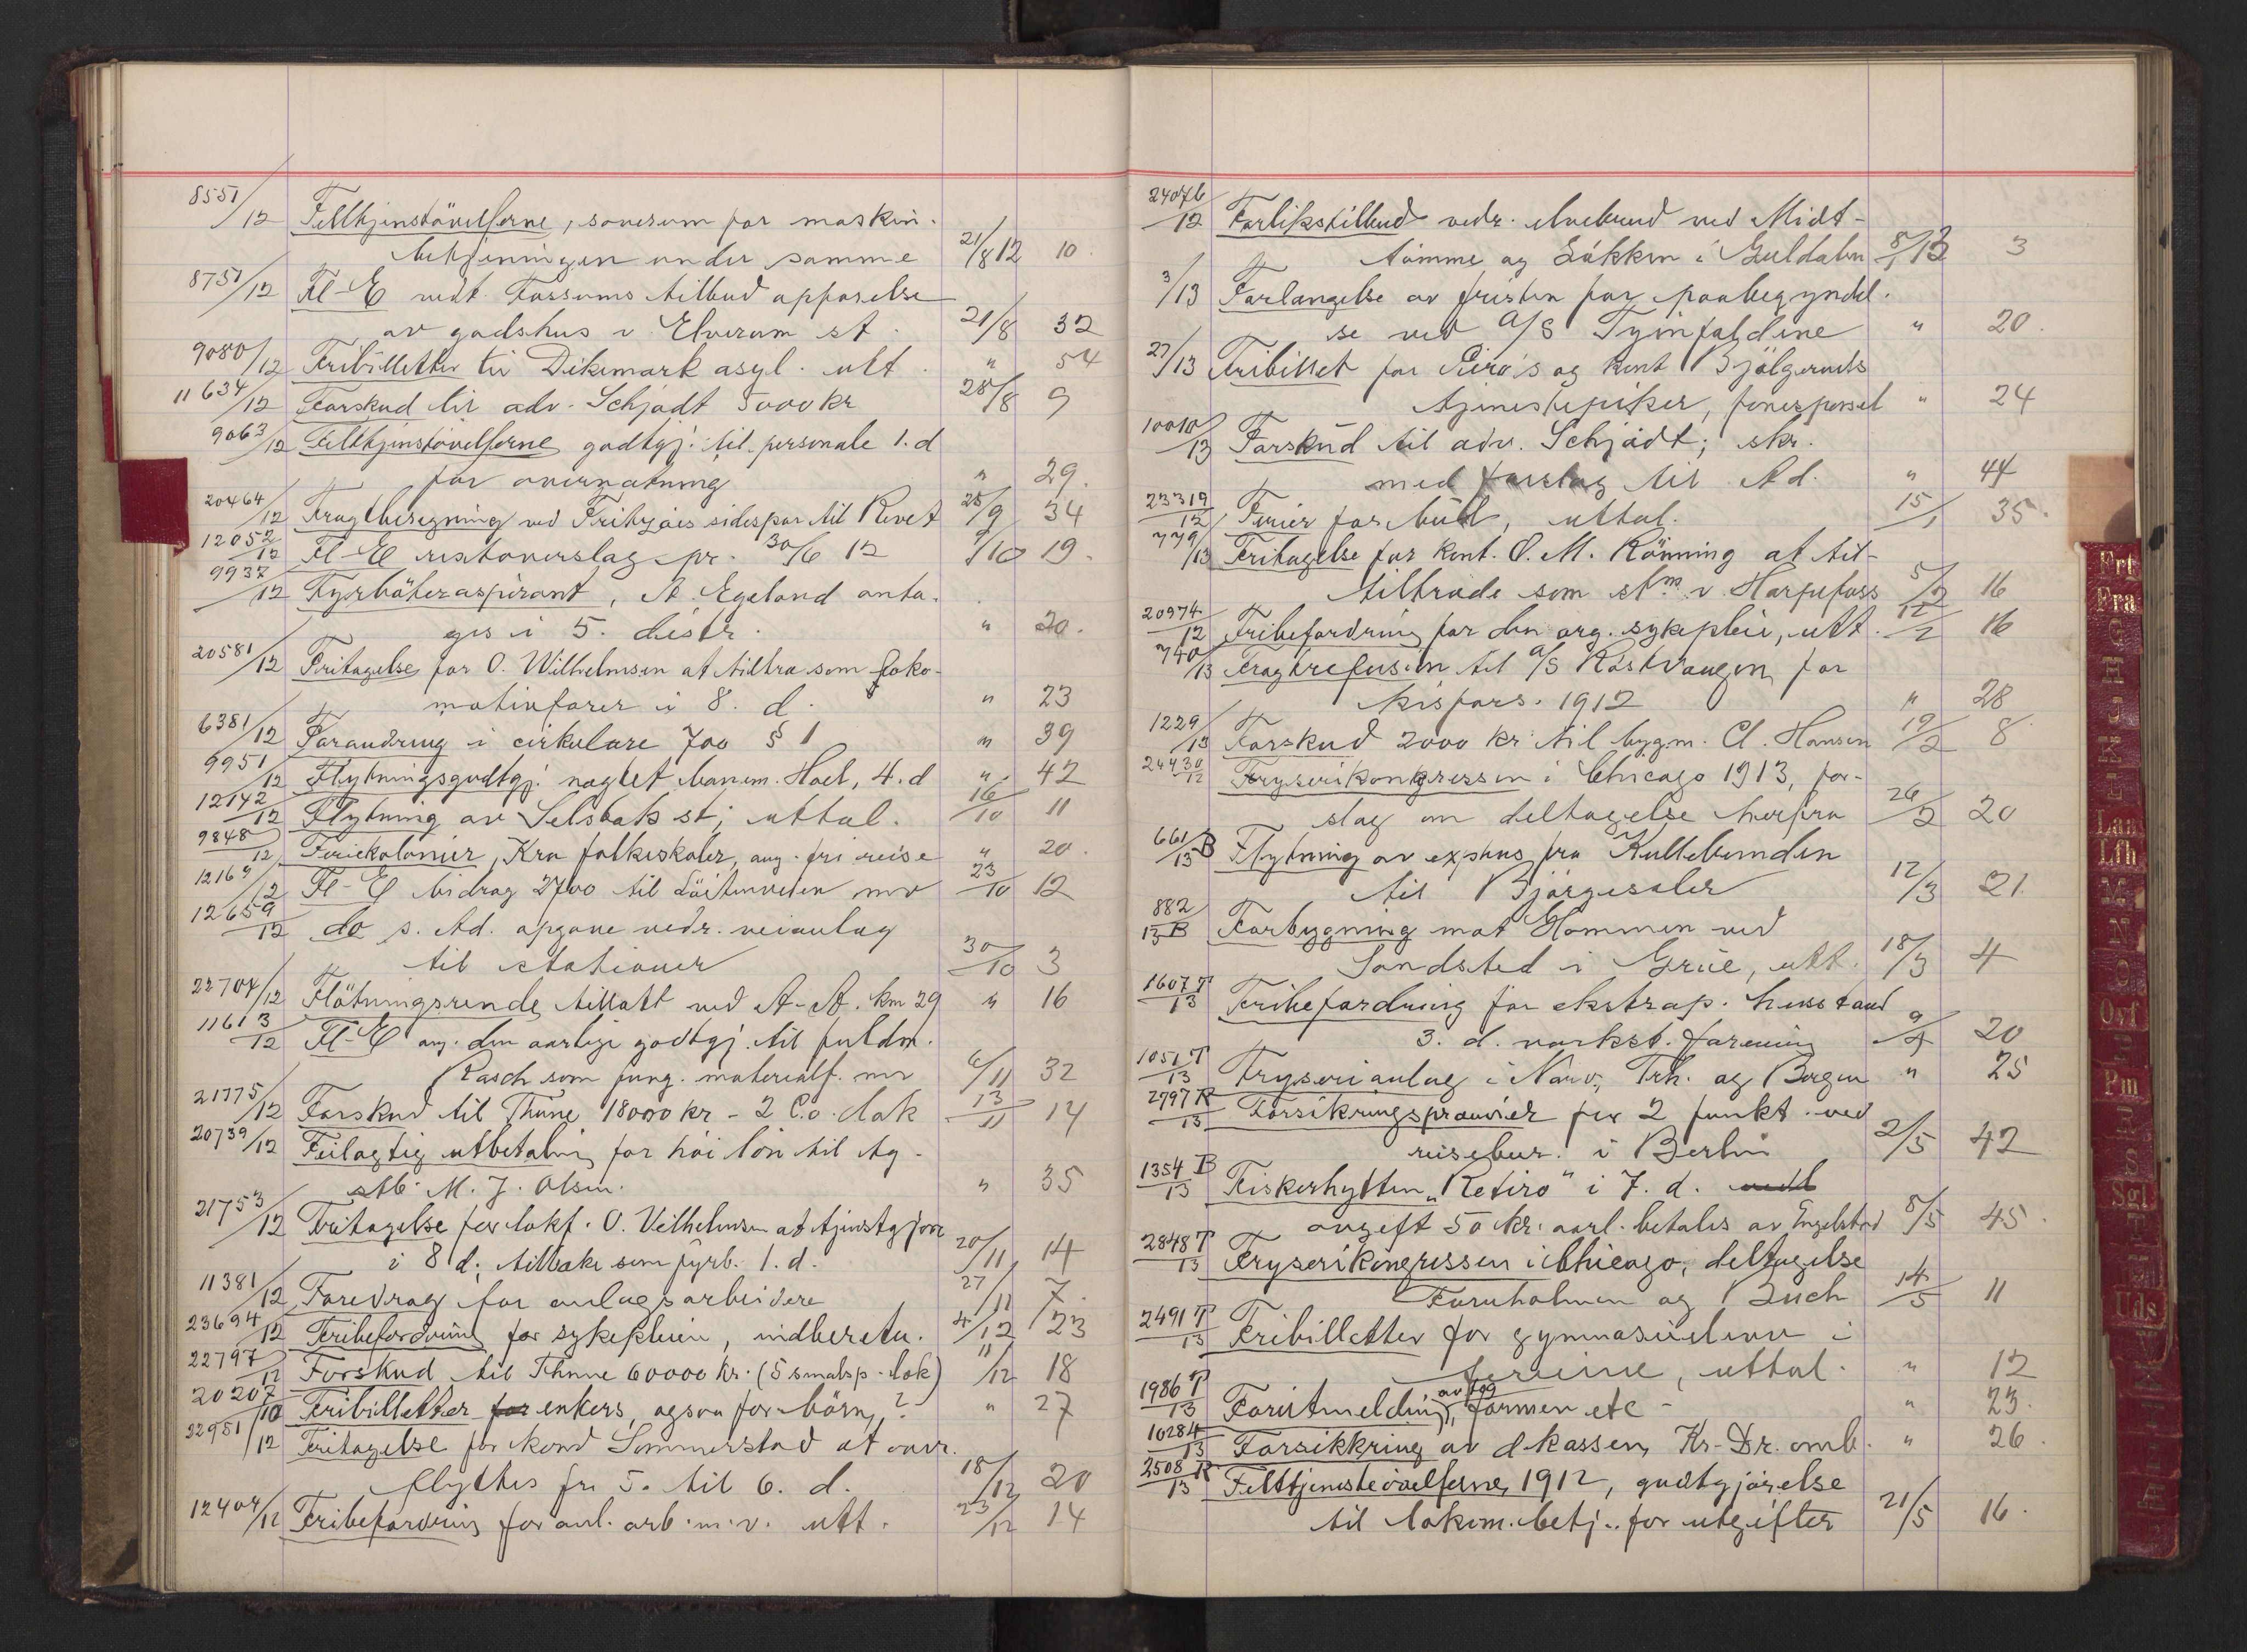 8551/12 Felttjenstövelserne, soverum for maskin-
betjeningen under samme 21/8 12 10.
8751/12 Fl-E vedt. Fossums tilbud opförelse
av godshus v. Elverum st. 21/8 32
9080/12 Fribilletter til Dikemark asyl. utt. " 54
11634/12 Forskud til adv. Schjödt 5000 kr 28/8 9
9063/12 Felttjenstövelserne godtgj. til personale 1. d
for overnatning " 29.
20464/12 Fragtberegning ved sidespor til Revet 25/9 34
12052/12 Fl-E restoverslag pr. 30/6 12 9/10 19.
9937/12 Fyrböteraspirant, A. Egeland anta-
ges i 5. distr. " 20.
20581/12 Fritagelse for O. Wilhelmsen at tiltræ som loko-
motivförer i 8. d. " 23
6381/12 Forandring i cirkulære 700 § 1 " 39
9951/12 Flytningsgodtgj. negtet banem. Hoel, 4. d " 42
12142/12 Flytning av Selsbak st; uttal. 16/10 11
9848/12 Feriekolonier, Kra folkeskoler, ang. fri reise " 20.
12169/12 Fl-E bidrag 2700 til Löitenveien mv 23/10 12
12659/12 do s. Ad. opgave vedr. veianlæg
til stationer 30/10 3
22704/12 Flötningsrende tillatt ved A-A. km 29 " 16
11613/12 Fl-E ang. den aarlige godtgj. til fuldm.
Rasch som fung. materialf. mv 6/11 32
21775/12 Forskud til Thune 18000 kr - 2 C.o. lok 13/11 14
20739/12 Feilagtig utbetaling for höi lön til tg-
stb. M. J. Olsen. " 35
21753/12 Fritagelse for lokf. O. Vilhelmsen at tjenstgjöre
i 8 d; tilbake som fyrb. 1. d. 20/11 14
11381/12 Foredrag for anlægsarbeidere 27/11 7.
23694/12 Fribefordring for sykepleien, indberetn. 4/12 23
22797/12 Forskud til Thune 60000 kr. (5 smalsp. lok) 11/12 18
20207/10 Fribilletter for enkers, ogsaa for börn? " 27
22951/12 Fritagelse for kond Sommerstad at over-
flyttes fra 5. til 6. d. 18/12 20
12404/12 Fribefordring for anl. arb. m. v. utt. 23/12 14
24076/12 Forlikstilbud vedr. elvebrud ved Midt-
tömme og Løkken i Guldalen 8/1 13 3
3/13 Forlængelse av fristen for paabegyndel-
se ved A/S Tyinfaldene " 20.
27/13 Fribillet for og kont Bjölgeruds
tjenestepiker, " 24
10010/13 Forskud til adv. Schjödt; skr.
med forslag til Ad. " 44
23319/12 Ferier for bud, uttal. 15/1 35.
779/13 Fritagelse for kont. O. M. Rönning at til-
tiltræde som stm v Harpefoss 5/2 16
20974/12 Fribefordring for den org. sykepleie, utt. 12/2 16
740/13 Fragtrefusion til A/S Röstvangen for
kisfors. 1912 " 28
1229/13 Forskud 2000 kr til bygm. Cl. Hansen 19/2 8
24430/12 Fryserikongressen i Chicago 1913, for-
slag om deltagelse herfra 26/2 20
661/13 B Flytning av exphus fra Kullebunden
til Bjørgeseter 12/3 21.
882/13 B Forbygning mot Glommen ved
Sandsted i Grue, utt. 18/3 4
1607 T/13 Fribefordring for ekstrap. husstand
3. d. verkst. forening 9/4 20
1051 T/13 Fryserianlæg i Narv, Trh. og Bergen " 25
2797 R/13 Forsikringspræmier for 2 funkt. ved
reisebur. i Berlin 2/5 42
1354 B/13 Fiskerhytten "Retiro" i 7. d. vedl
avgift 50 kr. aarl. betales av Engelstad 8/5 45.
2848 T/13 Fryserikongressen i Chicago, deltagelse
Furuholmen og Buch 14/5 11
2491 T/13 Fribilletter for gymnasielever i
ferierne, uttal. " 12
1986 T/13 Forutmelding av tog, formen etc - " 23.
10284/13 Forsikkring av d.kassen, Kr-Dr. omb. " 26.
2508 R/13 Felttjenesteövelserne 1912, godtgjörelse
til lokom. betj. for utgifter 21/5 16.
Frt
Fra
G
H
J
K
L
Laa
Lfh
M
N
O
Ovf
P
Pm
R
S
Sgl
T
U
Uds